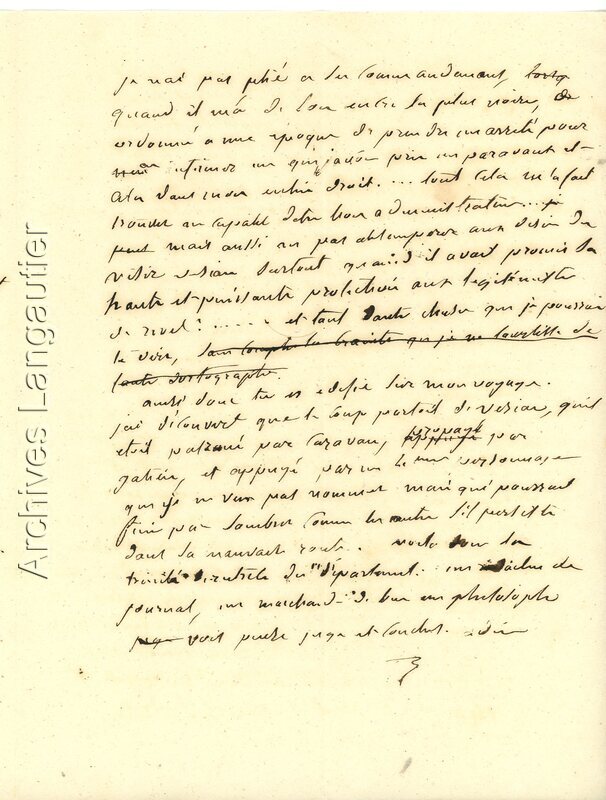 je nai pas plié a ses commandement, lorsq
quand il m'a de son encre la plus noire,
ordonné a une epoque de prendre un arrêté pour
infirmer un que javais pris un paravant et
cela dans mon entier droit. ... tout cela ma fait
trouver incapable detre bon administrateur ... je
mais aussi ne pas obtemperer aux desir du
visir surtout quand il avait promis sa
haute et puissante protection aux legitimiste
de rivel? ..... et tant dautre chose que je pourrais
te dire, sans compter la que je ne de
faute dortographe.
ainsi donc tu es edifié sur mon voyage.
jai découvert que le coup partait de vesian, quil
etait patroné par Caravan, propagé par
galien, et appuyé par un personnage
que je ne veux pas nommer mais qui pourrait
finir par sombrer comme un autre sil persiste
dans sa mauvaise route. voila la
trinité du département. un de
journal, un marchand de un philosophe
voit juge et conclut. adieu